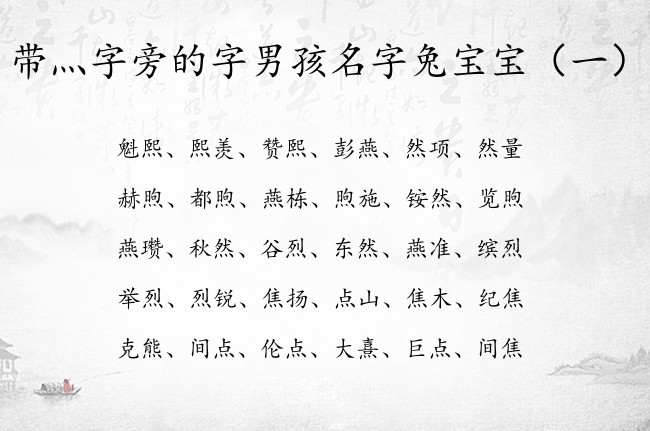 带灬字旁的字男孩名字兔宝宝（一）
魁熙、熙羡、赞熙、彭燕、然项、然量
赫煦、都煦、燕栋、煦施、铵然、览煦
燕瓒、秋然、谷烈、东然、燕准、缤烈
举烈、烈锐、焦扬、点山、焦木、纪焦
克熊、间点、伦点、大熹、巨点、间焦